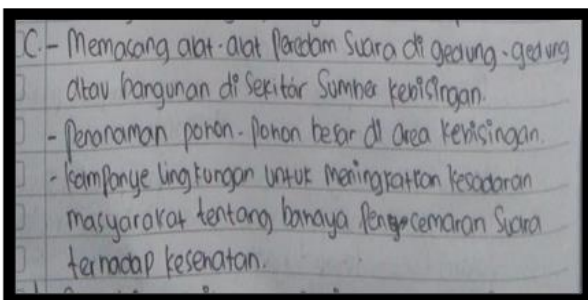 C. - Memasang alat-alat Peredam Suara di gedung-gedung
atau bangunan di Sekitar Sumber kebisingan.
- Penanaman pohon-pohon besar di area kebisingan.
- Kampanye lingkungan untuk meningkatkan kesadaran
masyarakat tentang bahaya Pencemaran Suara
terhadap kesehatan.